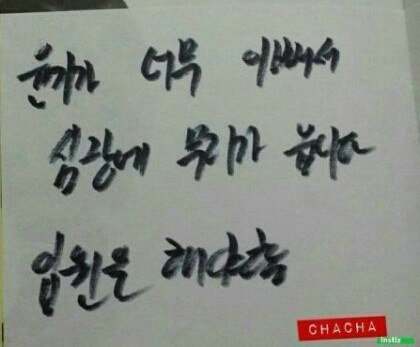 윤기가 너무 이뻐서
심장에 무리가 옵니다
입원을 해야할듯
CHACHA
Instiz